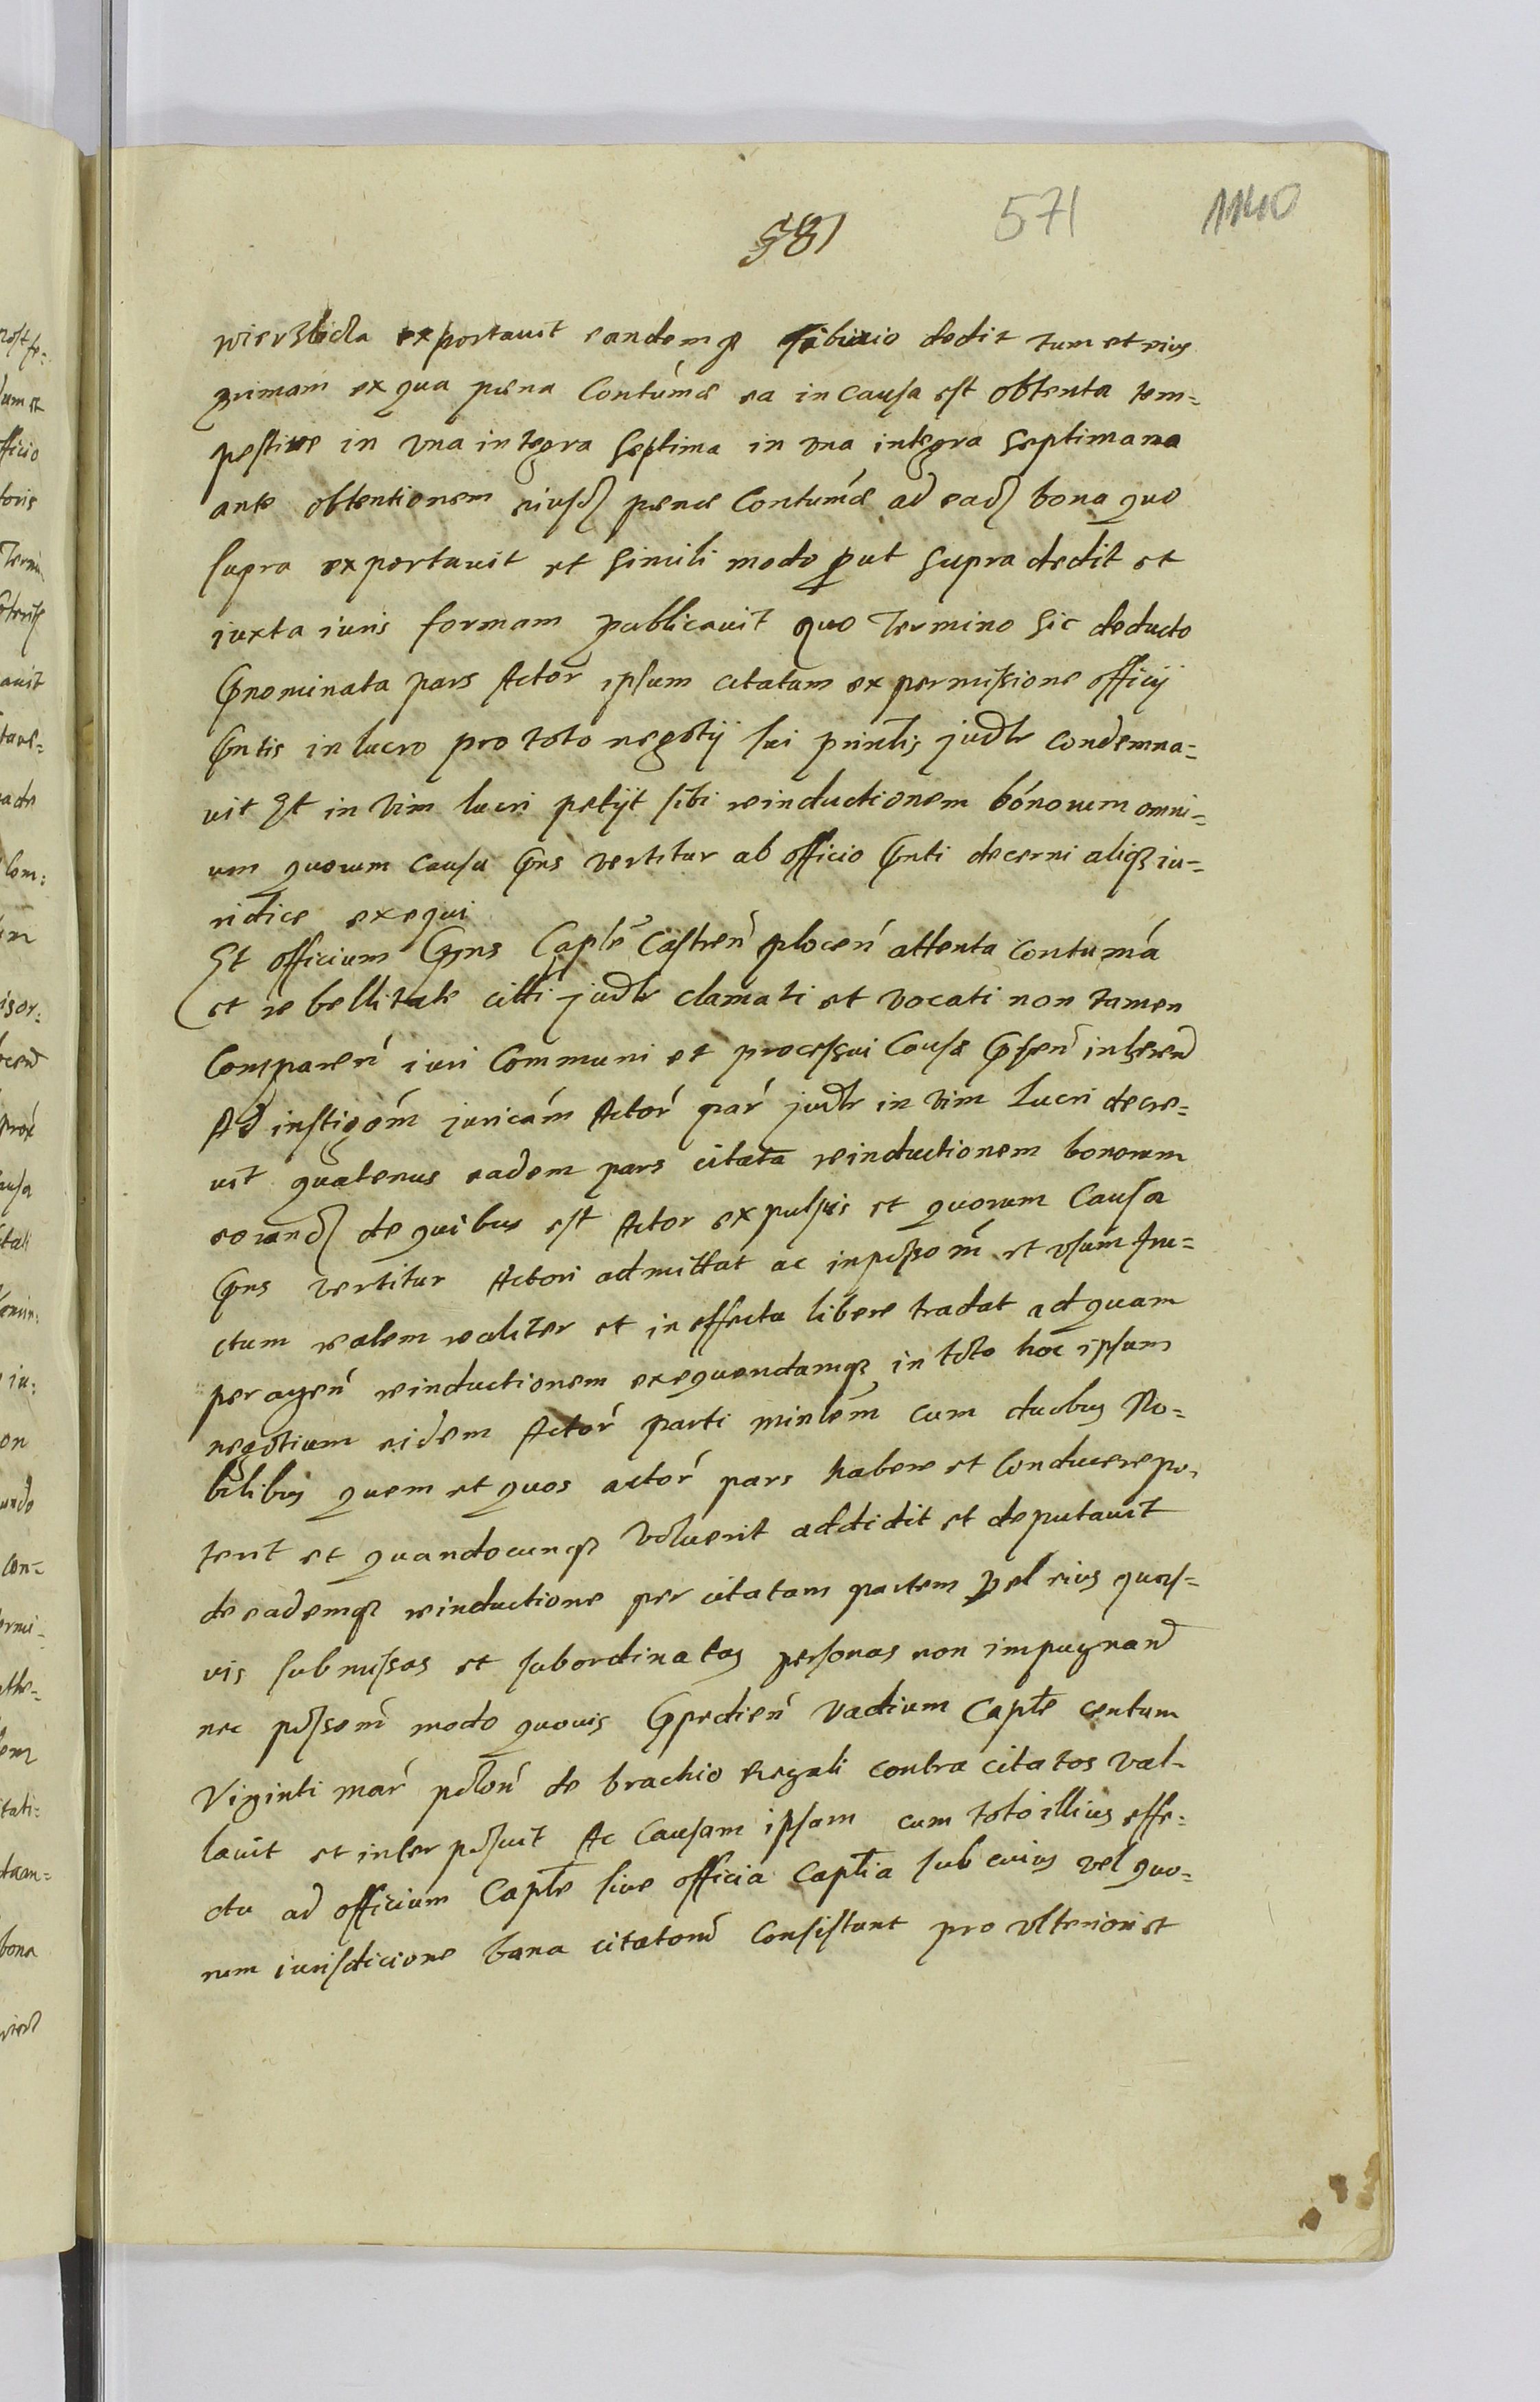 581 571 1140
wierzbicza exportavit eandemq sibivio dedit tum et eius
primam ex qua pœna Contumæ ea in causa est obtenta tem=
pestive in una integra septima in una integra septimana
ante obtentionem eiusd pœnæ Contumæ ad ead bona quo
supra exportavit et simili modo put supra dedit et
iuxta iuris formam publicavit quo Termino sic deducto
Pnominata pars Actor ipsum citatum ex permissione officij
Pntis in lucro pro toto negotij sui prinlis judlr condemna=
vit Et in vim lucri petijt sibi reinductionem bonorum omni=
um quorum causa Pns vertitur ab officio Pnti decerni aliq iu=
ridice exequi
Et officium Pns Caple Castren plocen attenta contuma
et rebellitate citti judlr clamati et vocati non tamen
Comparen iuri Communi et processui Causæ Psen inheren
Ad instigom juricam Actor par judlr in vim Lucri decre=
vit quatenus eadem pars citata reinductionem bonorum
eorund de quibus est Actor expulsus et quorum Causa
Pns vertitur Actori admittat ac in possom et usum fru=
ctum realem realiter et in effectu libere tradat ad quam
peragen reinductionem exequendamq in toto hoc ipsum
negotium eidem Actor parti minlem cum duobus No=
bilibus quem et quos actor pars habere et Conducere po=
terit et quandocunq voluerit addidit et deputavit
de eademq reinductione per citatam partem vel eius quas=
vis submissas et subordinatas personas non impugnand
nec possom modo quovis Ppedien vadium Caple centum
Viginti mar polon de brachio Regali contra citatos val=
lavit et interposuit Ac Causam ipsam cum toto illius effe=
ctu ad officium Caple sive officia Caplia sub cuius vel quo=
rum iurisdicione bona citatorum Consistunt pro ulteriori et